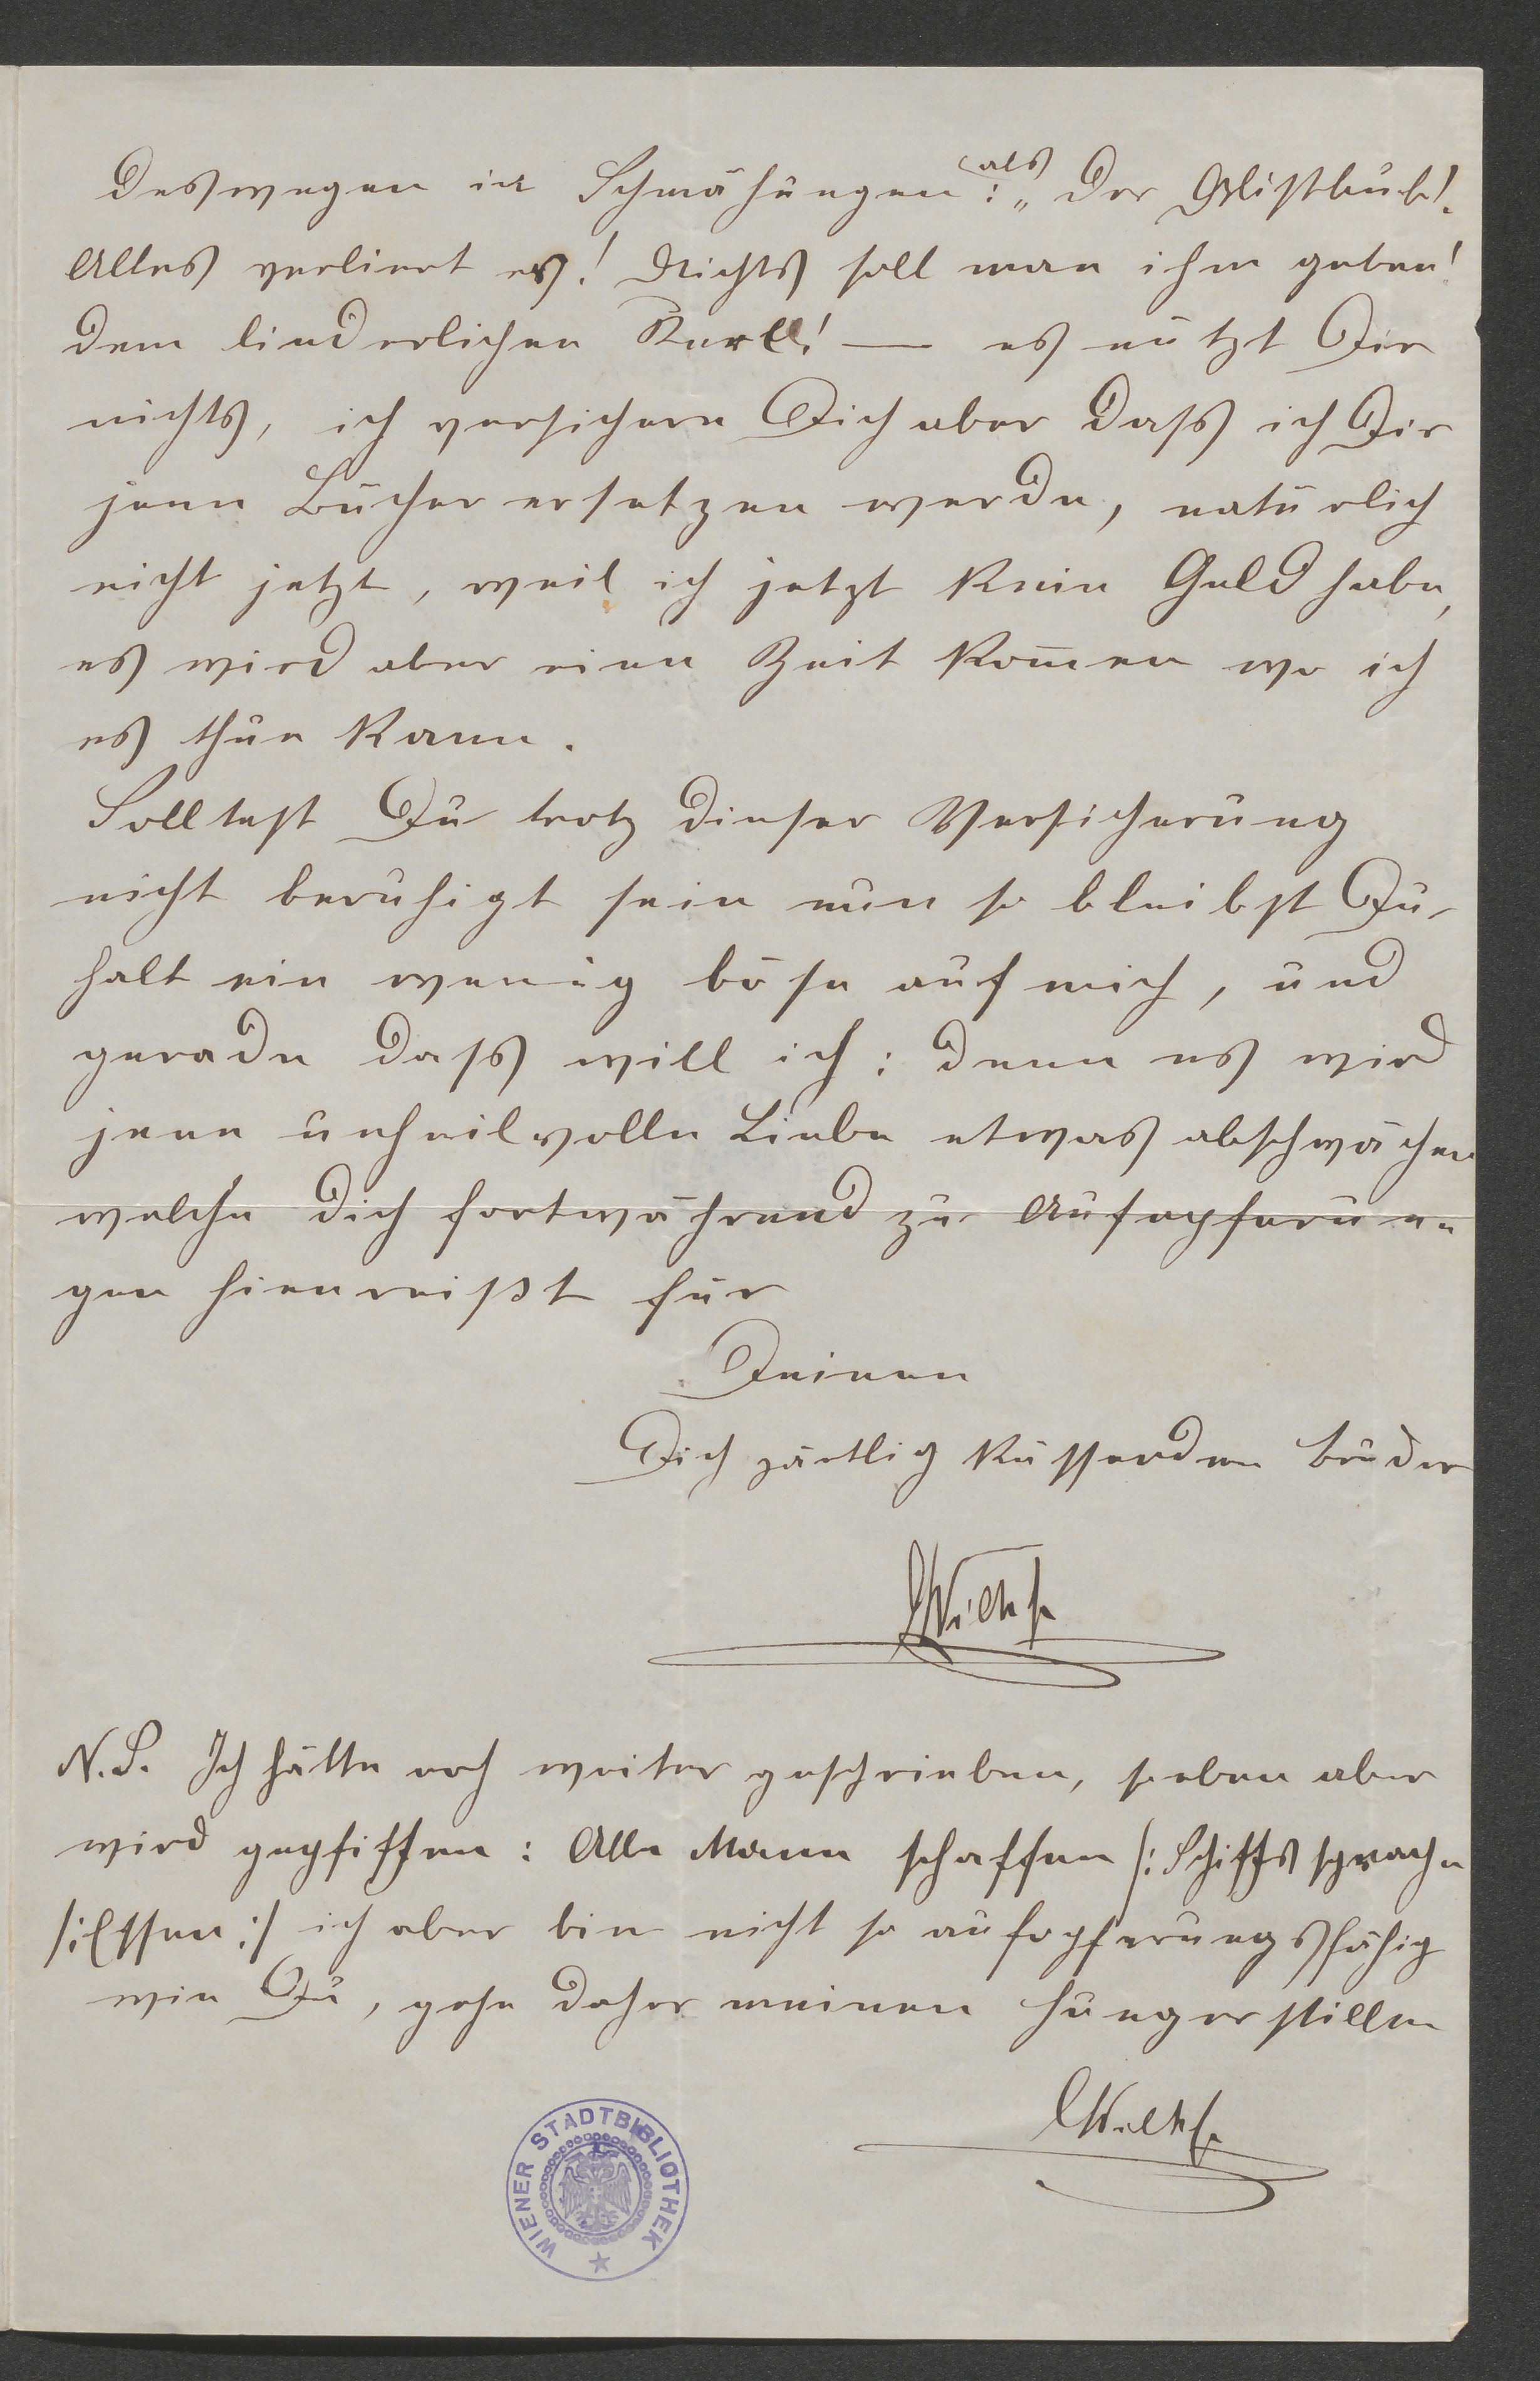 deswegen in Schmähungen als : „ der Mistbub!
Alles verliert er! Nichts soll man ihm geben!
dem liederlichen Kerl! — es nützt Dir
nichts, ich versichere Dich aber daß ich Dir
jene Bücher ersetzen werde, natürlich
nicht jetzt, weil ich jetzt kein Geld habe,
es wird aber eine Zeit kom̄en wo ich
es thun kann.
Solltest Du trotz dieser Versicherung
nicht beruhigt sein nun so bleibst Du
halt ein wenig böse auf mich, und
gerade daß will ich: denn es wird
jene unheilvolle Liebe etwas abschwächen
welche dich fortwährend zu Aufopferun-
gen hienreißt für
Deinen
Dich zärtlig küssenden Bruder
N.S. Ich hätte noch weiter geschrieben, soeben aber
wird gepfiffen: Alle Mann schaffen /: Schiffssprache
/: Essen :/ ich aber bin nicht so aufopferungsfähig
wie Du, gehe daher meinen Hunger stillen
WIENER STADTBIBLIOTHEK